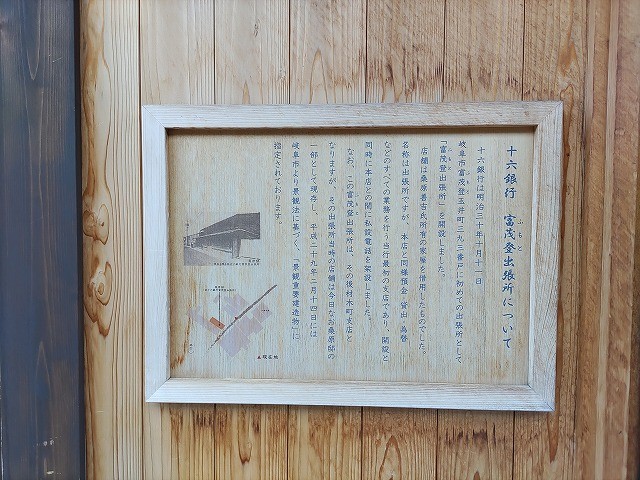 十六銀行 富茂登出張所について
ふもと
十六銀行は明治三十年十月十一日
岐阜市富茂登玉井町三九二番戸に初めての出張所として
ふもと
「富茂登出張所」を開設しました。
店舗は桑原善吉氏所有の家屋を借用したものでした。
名称は出張所ですが、本店と同様預金 貸出 為替
などのすべての業務を行う当行最初の支店であり、開設と
同時に本店との間に私設電話を架設しました。
なお、この富茂登出張所は、その後村木町支店と
なりますが、その出張所当時の店舗は今日なお桑原邸の
一部として現存し、平成二十九年二月十四日には
岐阜市より景観法に基づく、「景観重要建造物」に
指定されております。